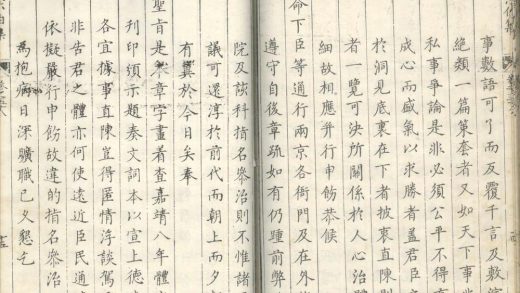 事數語可了而反覆千言及敷
絕類一篇策套者又如天下事
私事爭論是非必須公平不得
成心而盛氣以求勝者蓋君臣
於洞見底裏在下者披裹直陳則
者一覽可決所關係於人心治
細故相應并行申飭恭候
命下臣等通行兩京各衙門及在外
遵守自後章疏如有仍踵前弊
院及該科指名參治則不惟諸
議可還淳於前代而朝上而夕
有冀於今日矣奉
聖旨是奏章字畫着查嘉靖八年體
列印須示題奏文詞本以宣上德
各宜據事直陳豈得匿情浮談
非告君之體亦何使遠近臣民通
依擬嚴行申飭故違的指名參治
爲抱病日深曠職已久懇乞